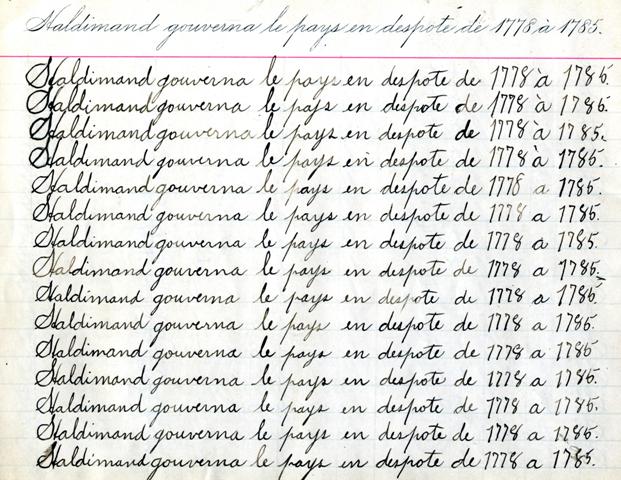 Haldimand gouverna le pays en despote de 1778 à 1785.
Haldimand gouverna le pays en despote de 1778 à 1785.
Haldimand gouverna le pays en despote de 1778 à 1785.
Haldimand gouverna le pays en despote de 1778 à 1785.
Haldimand gouverna le pays en despote de 1778 à 1785.
Haldimand gouverna le pays en despote de 1778 a 1785.
Haldimand gouverna le pays en despote de 1778 a 1785.
Haldimand gouverna le pays en despote de 1778 à 1785.
Haldimand gouverna le pays en despote de 1778 a 1785.
Haldimand gouverna le pays en despote de 1778 a 1785.
Haldimand gouverna le pays en despote de 1778 a 1785.
Haldimand gouverna le pays en despote de 1778 a 1785.
Haldimand gouverna le pays en despote de 1778 a 1785.
Haldimand gouverna le pays en despote de 1778 a 1785.
Haldimand gouverna le pays en despote de 1778 a 1785.
Haldimand gouverna le pays en despote de 1778 a 1785.